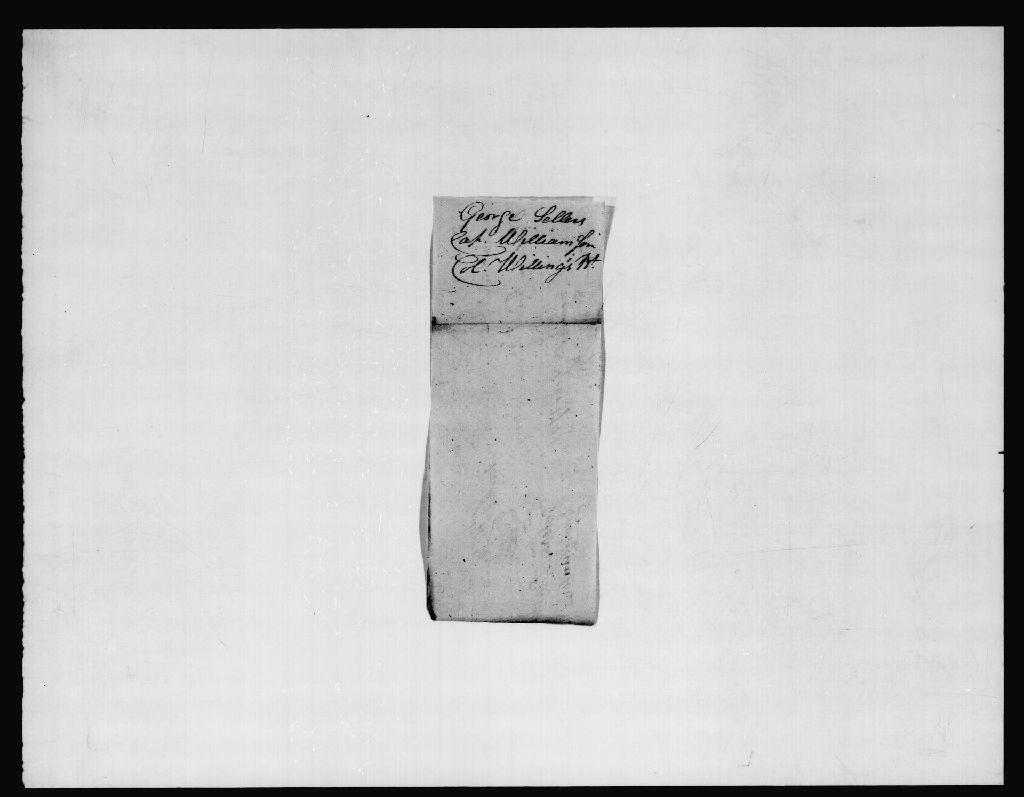 George Sellers
Cap. Williamson
Col. Willing's Rt.